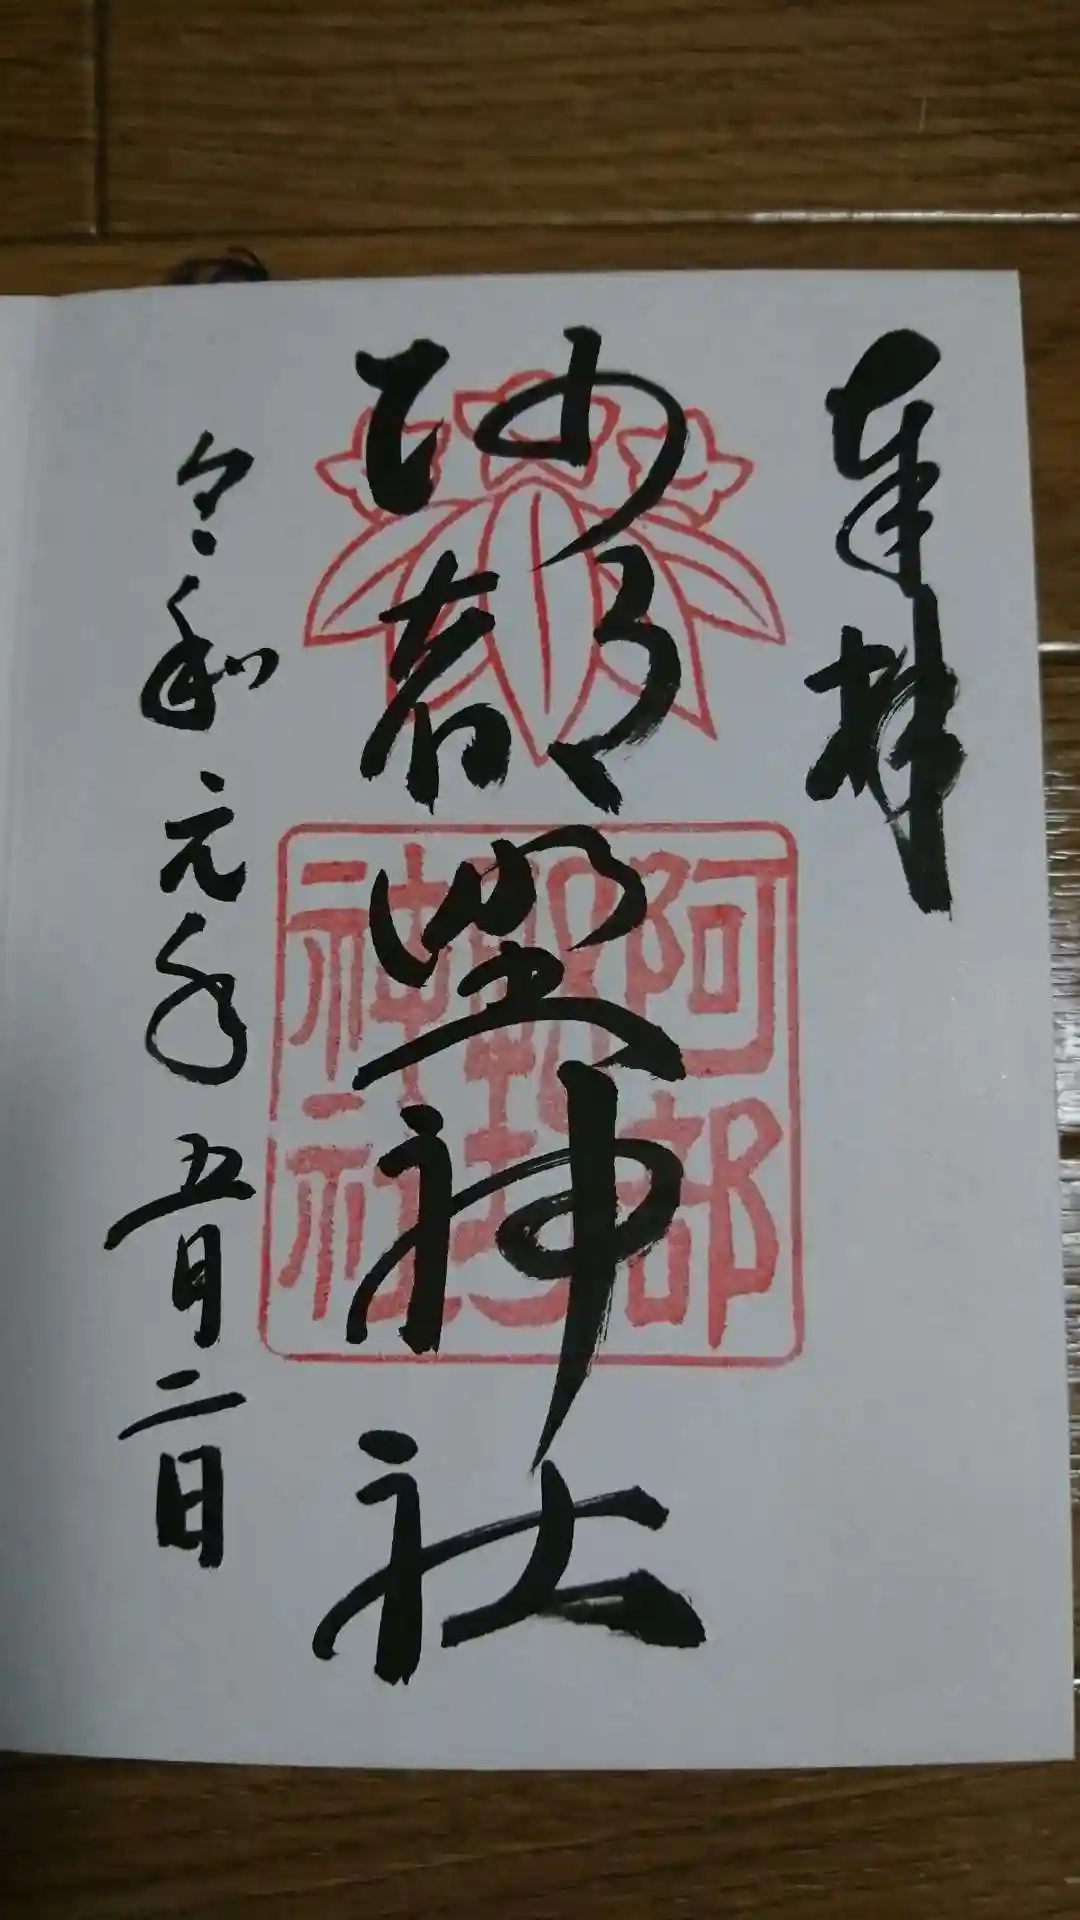 奉拝
阿部野神社
令和元年五月二日
阿部
野
神社